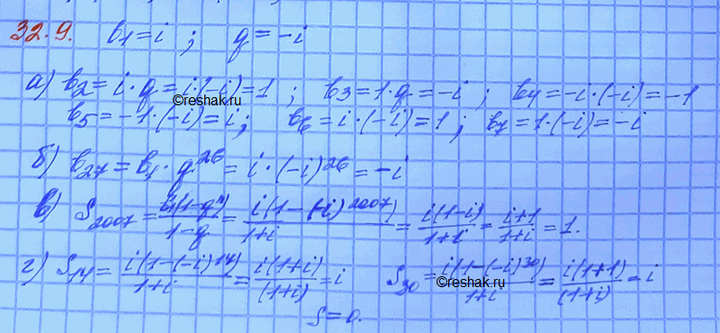 32.9. b₁=i ; q=-i
а) b₂=i·q=i·(-i)=1 ; b₃=1·q=-i ; b₄=-i·(-i)=-1
©reshak.ru
b₅=-1·(-i)=i ; b₆=i·(-i)=1 ; b₇=1·(-i)=-i
б) b₂₇=b₁·q²⁶=i·(-i)²⁶=-i
в) S₂₀₀₇= b₁(1-qⁿ)/1-q = i(1-(-i)²⁰⁰⁷)/1+i = i(1-i)/1+i = i+1/1+i =1.
г) S₁₄= i(1-(-i)¹⁴)/1+i = i(1+i)/(1+i) =i S₃₀= i(1-(-i)³⁰)/1+i = i(1+1)/(1+i) =i
©reshak.ru
S=0.